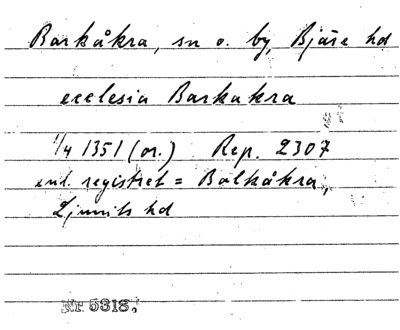 Barkåkra, sn o. by, Bjäre hd
ecclesia Barkakra
1/4 1351 (or.) Rep. 2307
enl. registret = Balkåkra,
Ljunits hd
Nr. 5318,